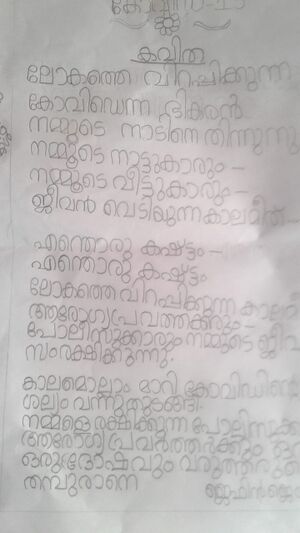 കവിത
ലോകത്തെ വിറപ്പിക്കുന്നു
കോവിഡെന്ന ഭീകരൻ
നമ്മുടെ നാടിനെ തിന്നുന്നു
നമ്മൂടെ നാട്ടുകാരും –
നമ്മൂടെ വീട്ടുകാരും –
ജീവൻ വെടിയുന്നകാലമിത
എന്തൊരു കഷ്ട്ടം –
എന്തൊരു കഷ്ട്ടം
ലോകത്തെ വിറപ്പിക്കുന്ന
ആരോഗ്യപ്രവത്തകരും –
പോലീസുക്കാരും നമ്മുടെ ജീവ
സംരക്ഷിക്കുന്നു.
കാലമൊല്ലാം മാറി കോവിഡിന്റെ
ശല്യം വന്നുതുടങ്ങി.
നമ്മളെ രക്ഷിക്കുന്ന
ആരോഗ്യപ്രവർത്തർക്കും
ഒരുദോഷവും വരുത്തരു
തമ്പുരാനെ